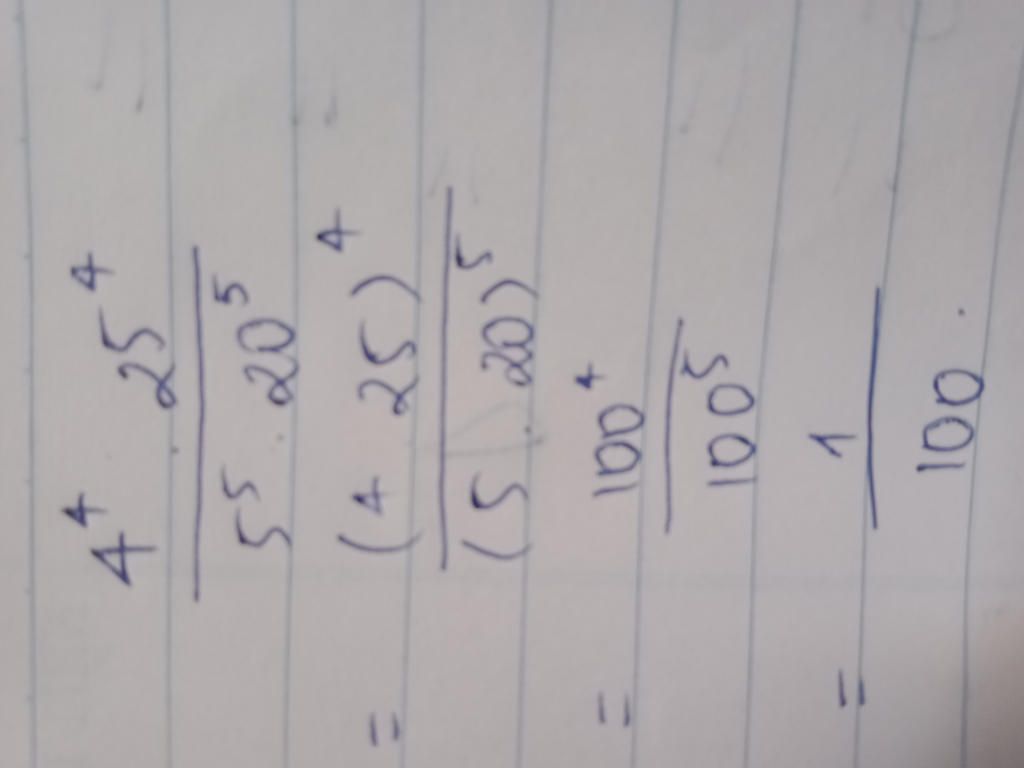 4⁴ . 25⁴
5⁵ . 20⁵
= (4 25)⁴
(5 . 20)⁵
= 100⁴
100⁵
= 1
100 .